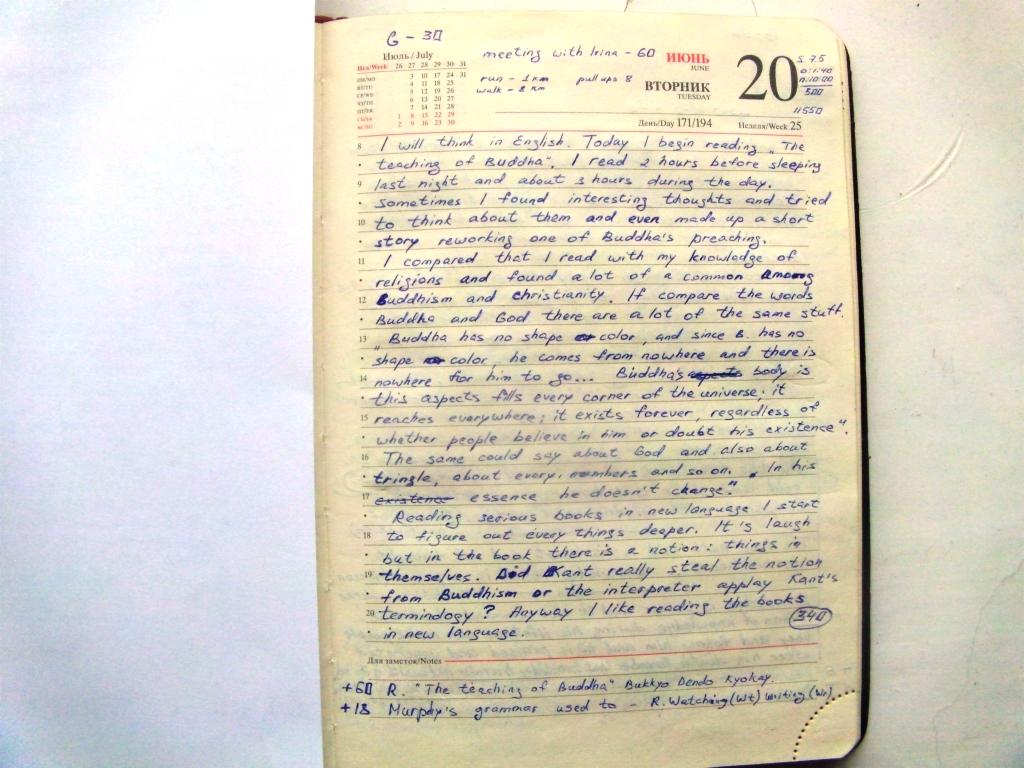 G - 30
Июль / July
Нед/Week 26 27 28 29 30 31
ПН/MO 3 10 17 24 31
ВТ/TU 4 11 18 25
СР/WE 5 12 19 26
ЧТ/TH 6 13 20 27
ПТ/FR 7 14 21 28
СБ/SA 1 8 15 22 29
ВС/SU 2 9 16 23 30
meeting with Irina - 60
run - 1 km pull ups 8
walk - 8 km
ИЮНЬ
JUNE
ВТОРНИК
TUESDAY
20
S. 7.5
0:1:40
n:10:00
500
11550
День/Day 171/194 Неделя/Week 25
8 I will think in English. Today I begin reading „The
teaching of Buddha". I read 2 hours before sleeping
9 last night and about 3 hours during the day.
Sometimes I found interesting thoughts and tried
10 to think about them and even made up a short
story reworking one of Buddha's preaching.
11 I compared that I read with my knowledge of
religions and found a lot of a common among
12 Buddhism and christianity. If compare the words
Buddha and God there are a lot of the same stuff.
13 „Buddha has no shape or color, and since B. has no
shape or color, he comes from nowhere and there is
14 nowhere for him to go... Buddha's aspects body is
this aspects fills every corner of the universe; it
15 reaches everywhere; it exists forever, regardless of
whether people believe in him or doubt his existence".
16 The same could say about God and also about
tringle, about every, nombers and so on. „In his
17 existence essence he doesn't change."
Reading serious books in new language I start
18 to figure out every things deeper. It's laugh
but in the book there is a notion: things in
19 themselves. Did Kant really steal the notion
from Buddhism or the interpreter applay Kant's
20 terminology? Anyway I like reading the books
340
in new language.
Для заметок/Notes
+60 R. "The teaching of Buddha" Bukkyo Dendo Kyokay.
+18 Murphy's grammar used to - R. Watching (Wt) Writing (Wr)